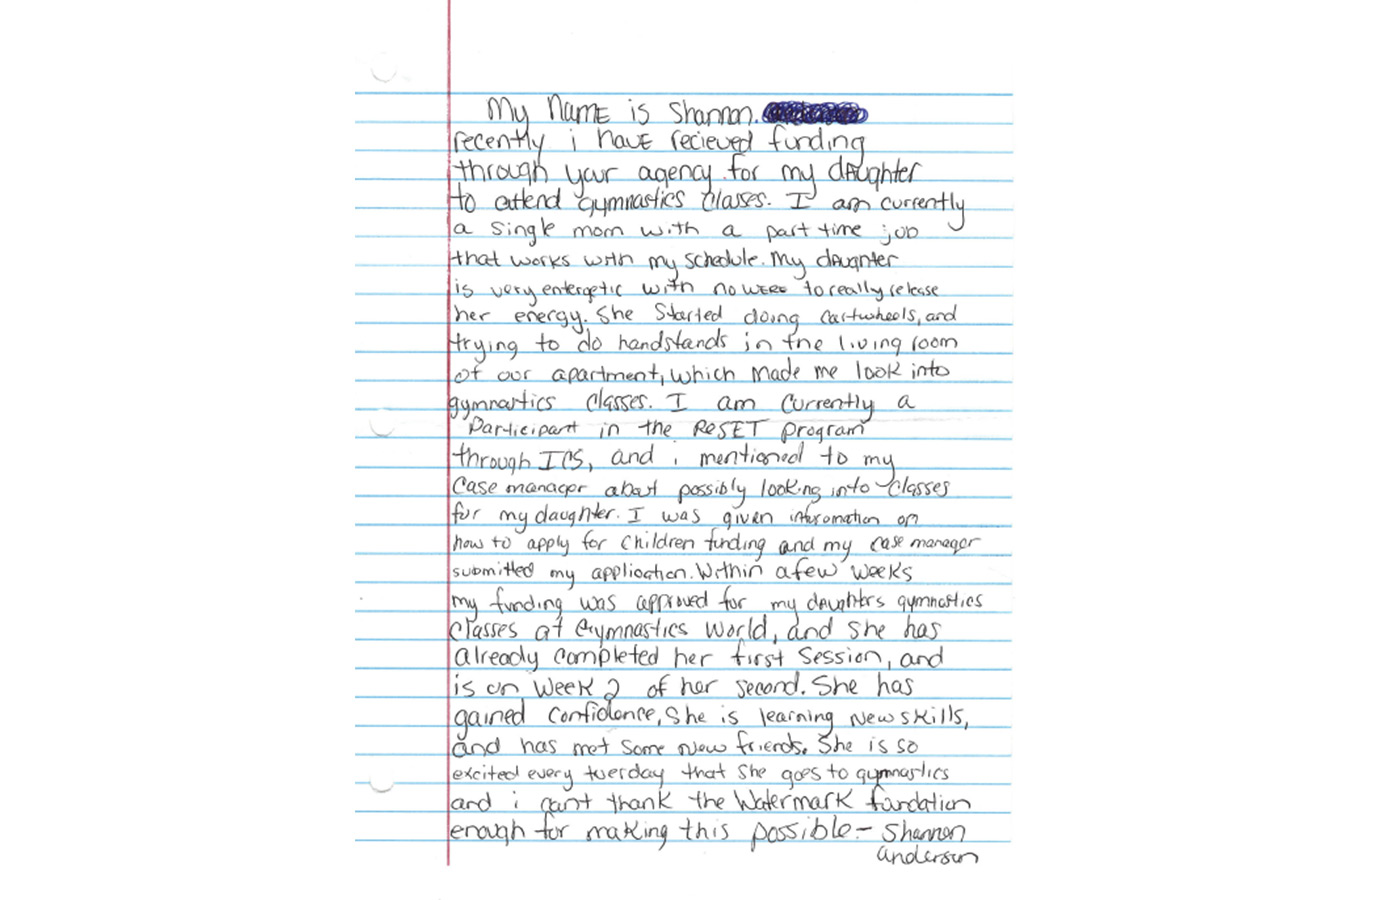 My NamE is Shannon.
recently i havE recieved funding
through your agency for my dAughter
to attend gymnastics classes. I am currently
a single mom with a part time job
that works with my schedule. My dAughter
is very entergetic with nowere to really release
her energy. She Started doing cartwheels, and
trying to do handstands in the living room
of our apartment, which made me look into
gymnastics classes. I am currently a
Participant in the RESET program
through ICS, and i mentioned to my
Case manager about possibly looking into classes
for my daughter. I was given information on
how to apply for children funding and my case manager
submitted my application. Within a few weeks
my funding was approved for my daughters gymnastics
classes at Gymnastics World, and she has
already completed her first Session, and
is on week 2 of her second. She has
gained confidence, She is learning new skills,
and has met some new friends. She is so
excited every tuesday that she goes to gymnastics
and i can't thank the Watermark foundation
enough for making this possible - Shannon
anderson